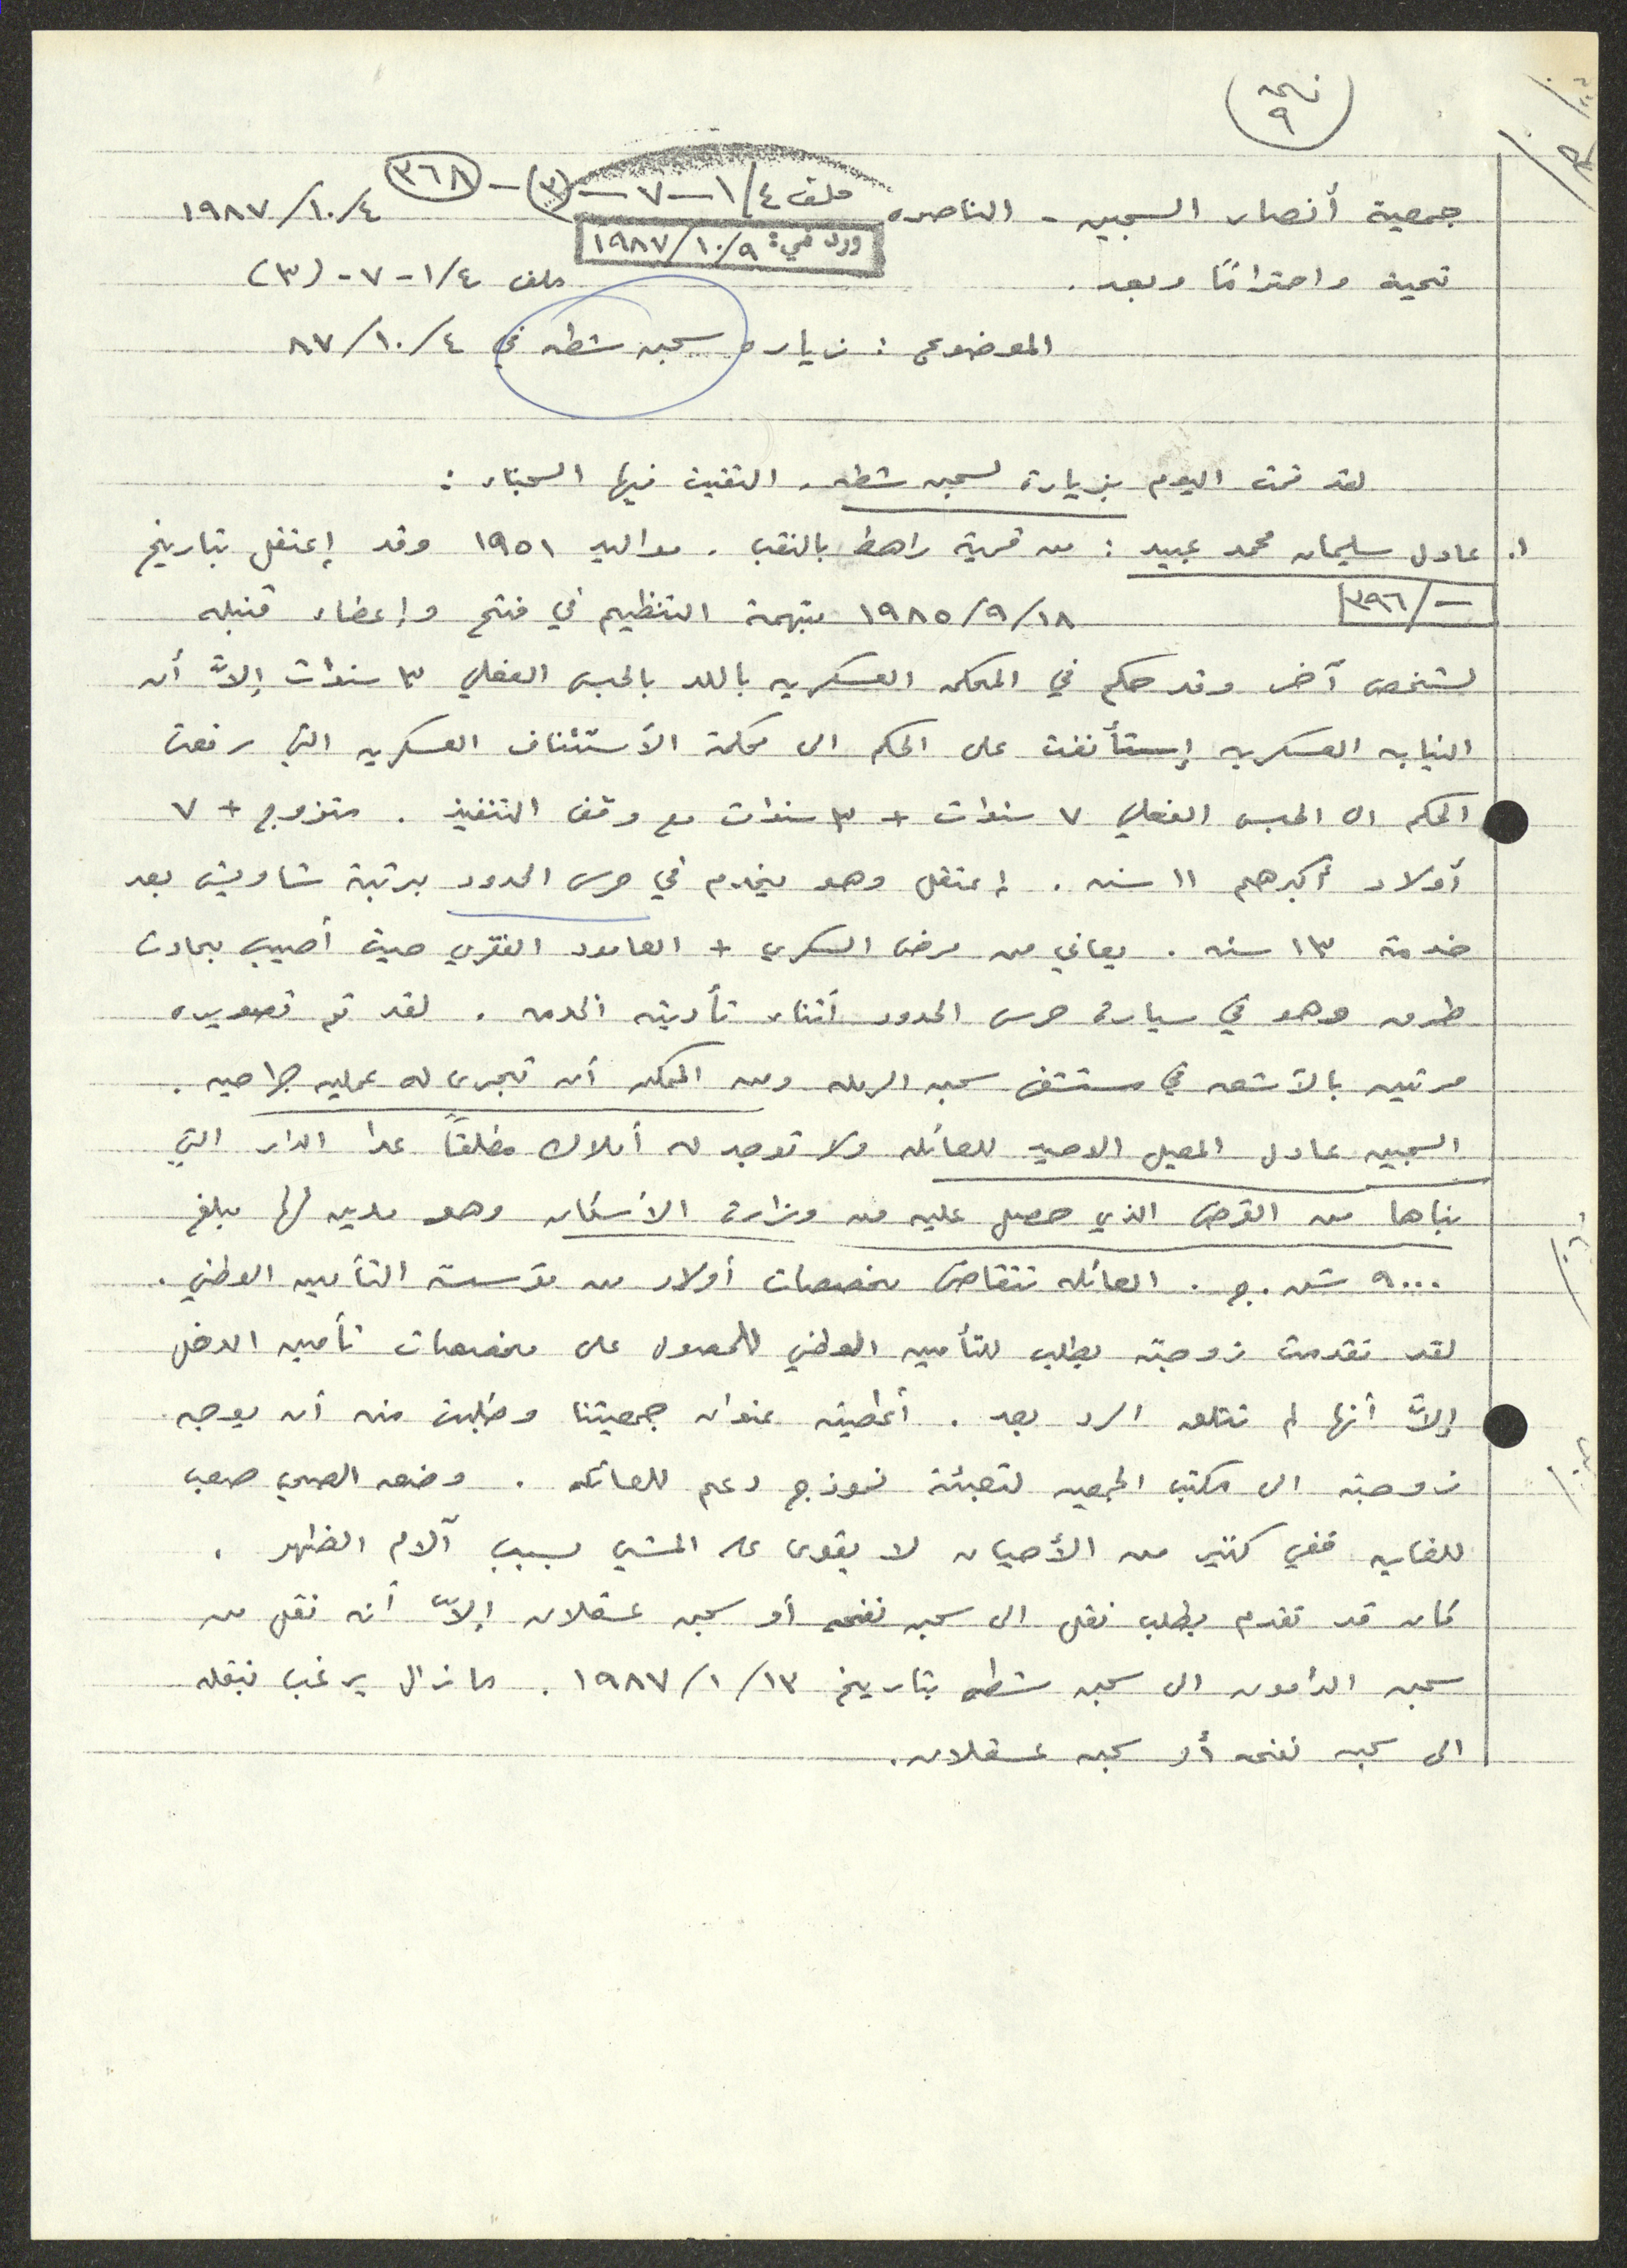 نسخه
٩
ملف ١/٤ - ٧ - (٣) - ٣٦٨
جمعية أنصار السجين - الناصره ٤/١٠/١٩٨٧
ورد في: ٩/١٠/١٩٨٧
تحية واحترامًا وبعد. ملف ١/٤ - ٧ - (٣)
الموضوع: زياره سجن شطه في ٤/١٠/٨٧
لقد قمت اليوم بزيارة لسجن شطه. التقيت فيها السجناء:
١. عادل سليمان محمد عبيد: من قرية راهط بالنقب. مواليد ١٩٥١ وقد إعتقل بتاريخ
-/٣٩٦
١٨/٩/١٩٨٥ بتهمة التنظيم في فتح وإعضاء قنبله
لشخص آخر وقد حكم في المحكمه العسكريه باللد بالحبس الفعلي ٣ سنوات إلاَّ أن
النيابه العسكريه إستأنفت على الحكم الى محكمة الأستئناف العسكريه التي رفعت
الحكم الى الحبس الفعلي ٧ سنوات + ٣ سنوات مع وقف التنفيذ. متزوج + ٧
أولاد أكبرهم ١١ سنه. إعتقل وهو يخدم في حرس الحدود برتبة شاويش بعد
خدمة ١٣ سنه. يعاني من مرض السكري + العامود الفقري حيث أصيب بحادث
طرق وهو في سيارة حرس الحدود أثناء تأديته الخدمه. لقد تم تصويره
مرتين بالأشعه في مستشفى سجن الرمله ومن الممكن أن تجرى له عمليه جراحيه.
السجين عادل المعيل الوحيد للعائله ولا توجد له أملاك مطلقاً عدا الدار التي
بناها من القرض الذي حصل عليه من وزارة الأسكان وهو مدين لها مبلغ
٩٠٠٠ ش.ج. العائله تتقاضى مخصصات أولاد من مؤسسة التأمين الوطني.
لقد تقدمت زوجته بطلب للتأمين الوطني للحصول على مخصصات تأمين الدخل
إلاَّ أنها لم تتلق الرد بعد. أعطيته عنوان جمعيتنا وطلبت منه أن يوجه
زوجته الى مكتب الجمعيه لتعبئة نموذج دعم للعائله. وضعه الصحي صعب
للغايه ففي كثير من الأحيان لا يقوى على المشي بسبب آلام الظهر.
كان قد تقدم بطلب نقل الى سجن نفحه أو سجن عسقلان إلاّ أنه نقل من
سجن الدامون الى سجن شطه بتاريخ ١٣/١/١٩٨٧. ما زال يرغب بنقله
الى سجن نفحه أو سجن عسقلان.